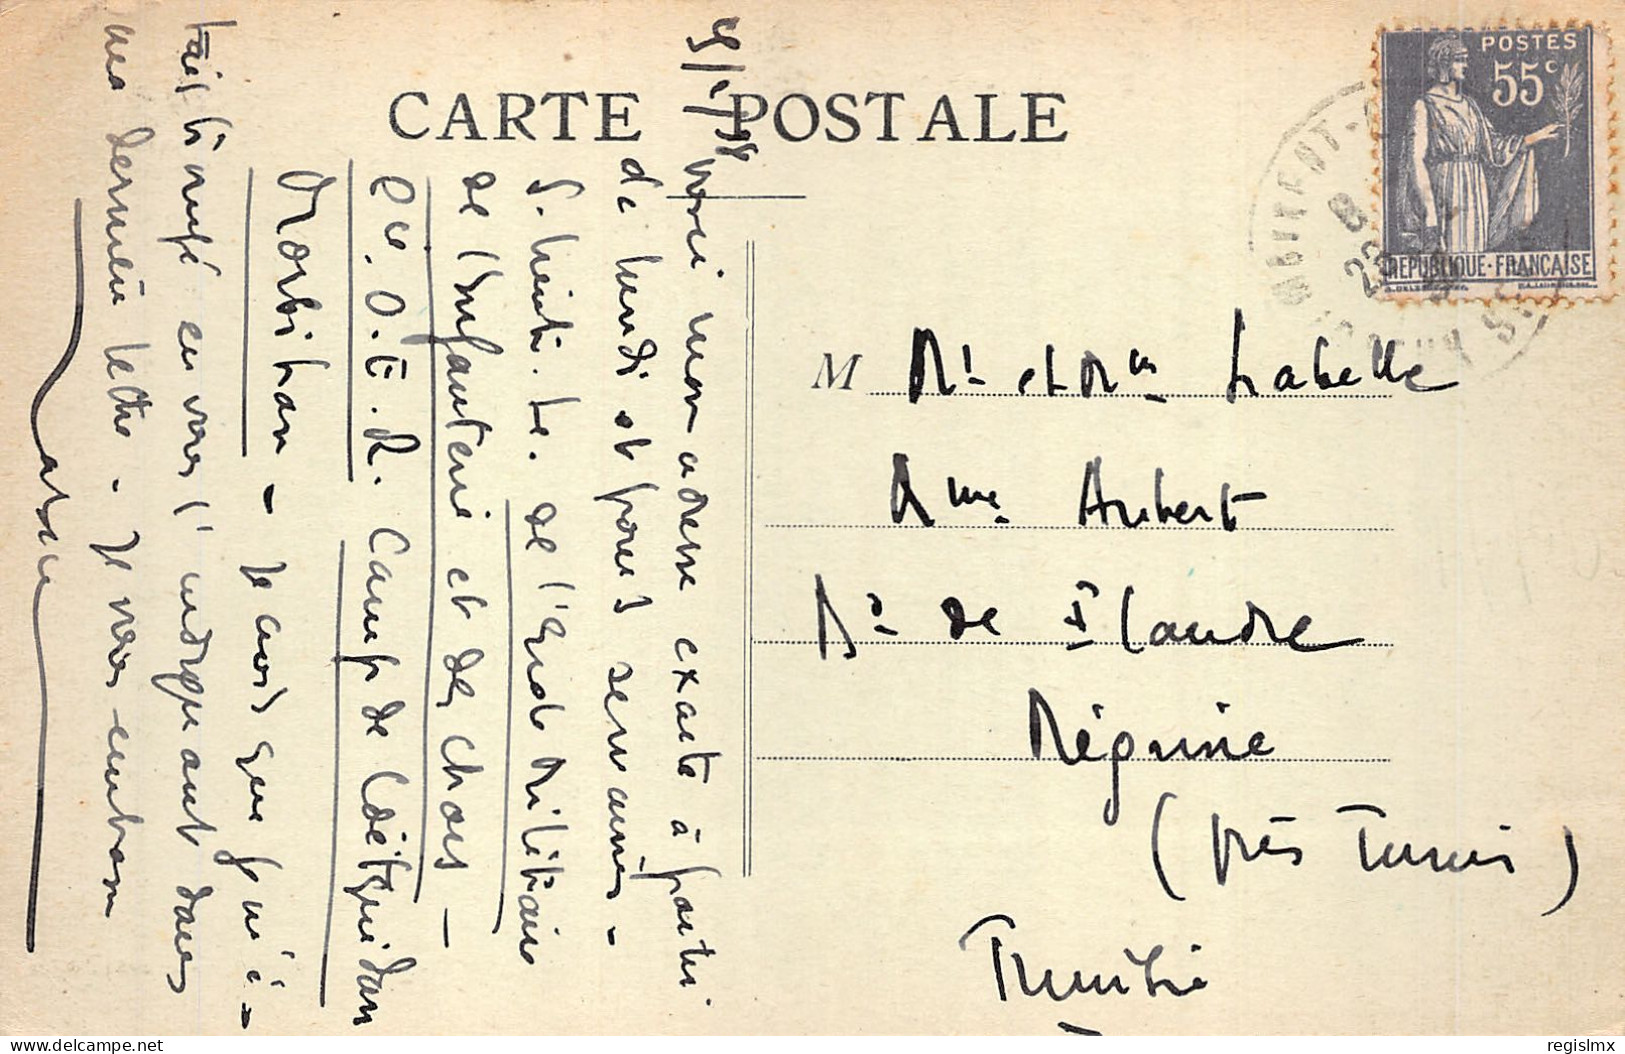 CARTE POSTALE
POSTES
55c
REPUBLIQUE-FRANCAISE
Voici mon adresse exacte à partir
de lundi et pour 3 semaines -
S. Lieut. de l'Ecole Militaire
de l'Infanterie et des chars -
Cie. O.E.R. Camp de Coëtquidan
Morbihan - Je crois que j'ai é-
tais trompé en vous l'indiquant dans
ma dernière lettre - Je vous embrasse
M
Mr et Mme Labelle
Ame Aubert
de St Claude
Mégrine
(près Tunis)
Tunisie
regislmx
delcampe.net